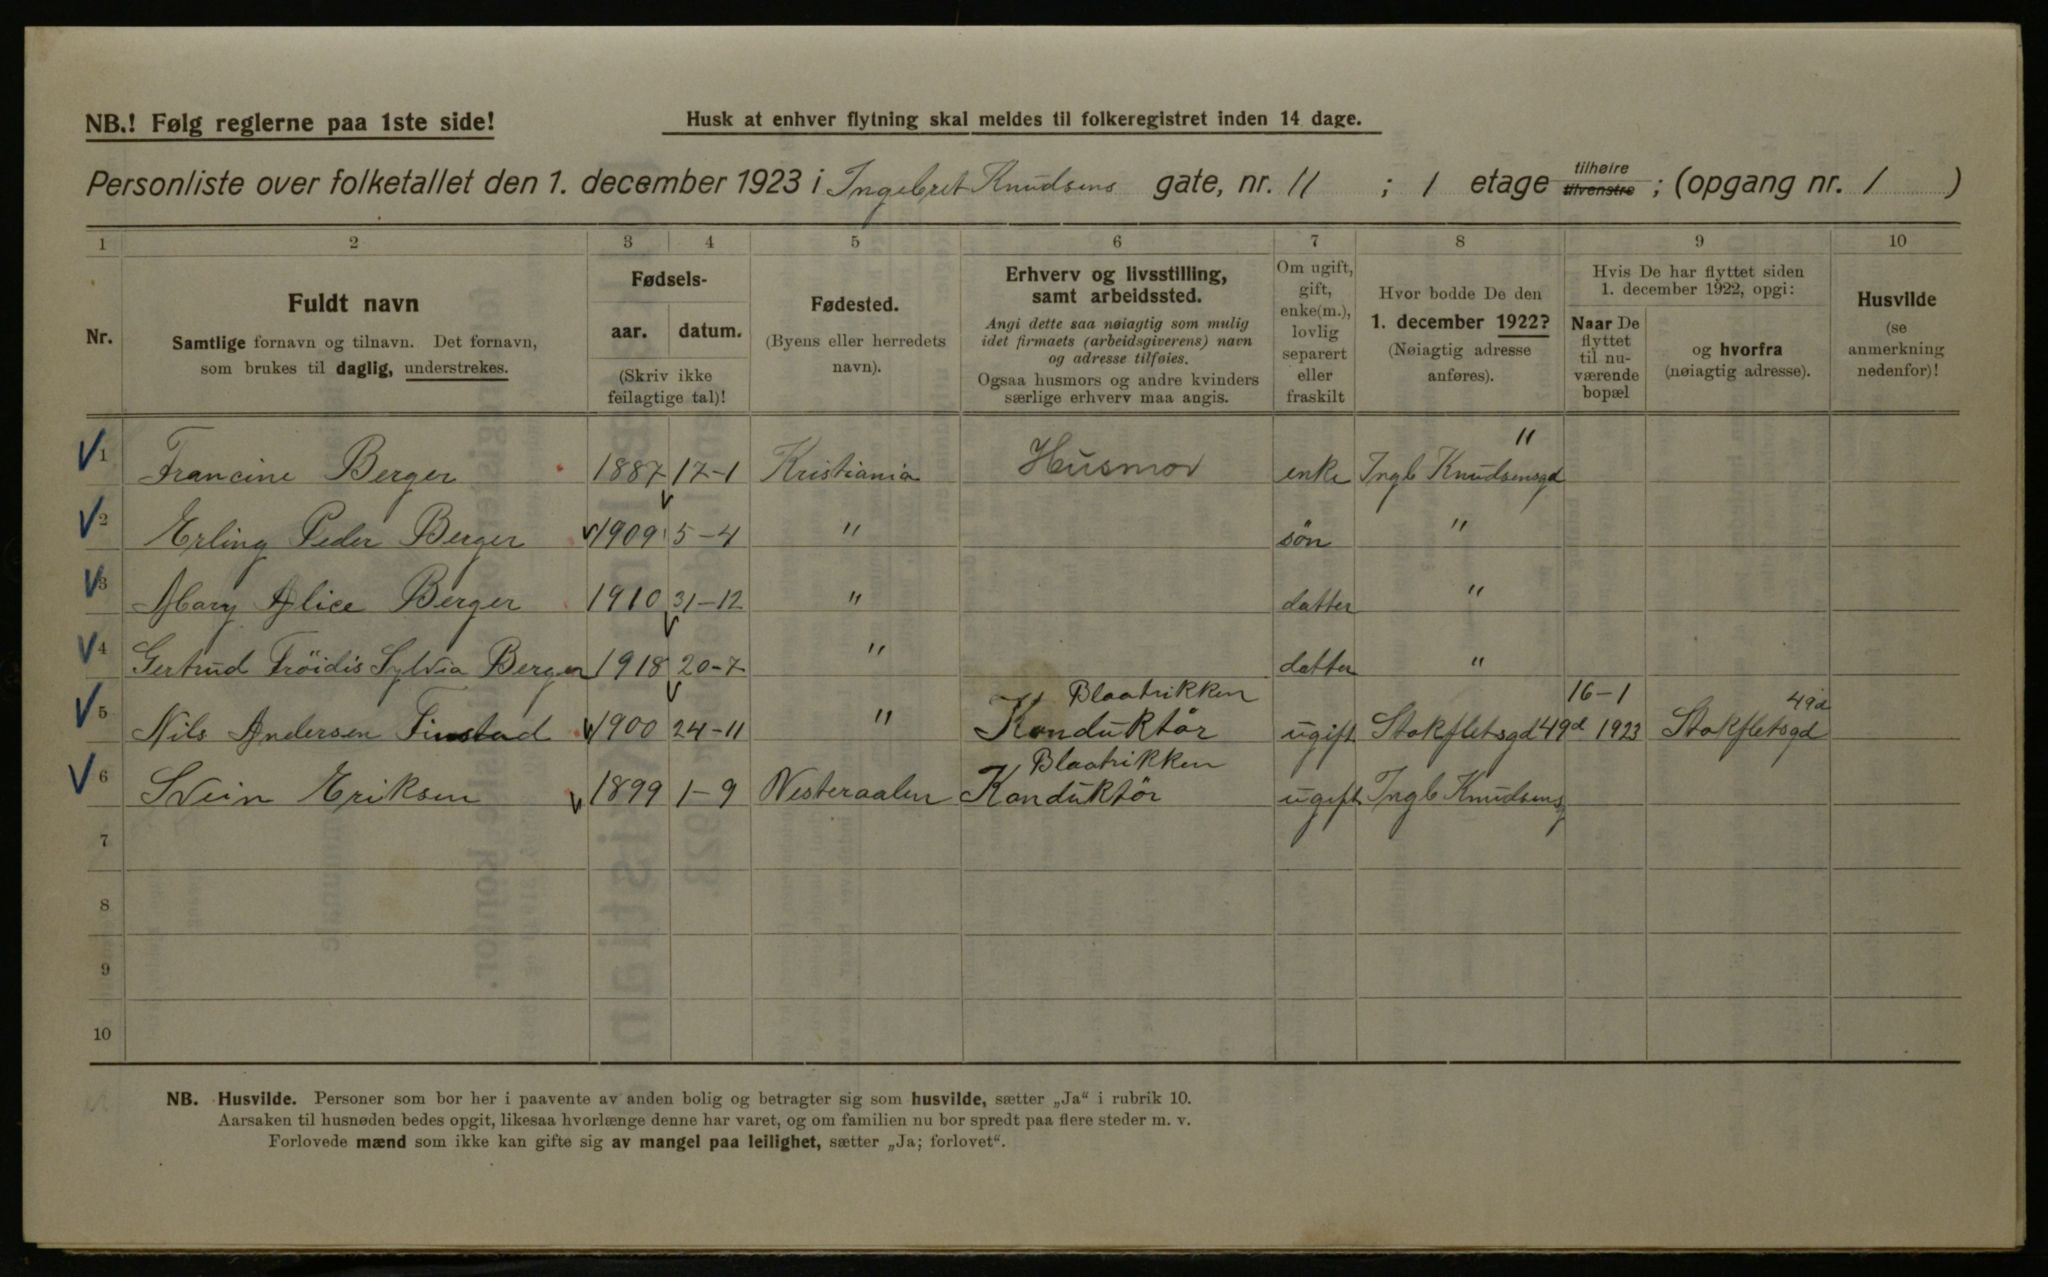 NB.! Følg reglerne paa 1ste side!
Husk at enhver flytning skal meldes til folkeregistret inden 14 dage.
Personliste over folketallet den 1. december 1923 i Ingebret Knudsens gate, nr. 11 ; 1 etage tilhøire tilvenstre ; (opgang nr. 1 )
1 2 3 4 5 6 7 8 9 10
Nr.
Fuldt navn
Samtlige fornavn og tilnavn. Det fornavn,
som brukes til daglig, understrekes.
Fødsels-
aar. datum.
(Skriv ikke
feilagtige tal)!
Fødested.
(Byens eller herredets
navn).
Erhverv og livsstilling,
samt arbeidssted.
Angi dette saa nøiagtig som mulig
idet firmaets (arbeidsgiverens) navn
og adresse tilføies.
Ogsaa husmors og andre kvinders
særlige erhverv maa angis.
Om ugift,
gift,
enke(m.),
lovlig
separert
eller
fraskilt
Hvor bodde De den
1. december 1922?
(Nøiagtig adresse
anføres).
Hvis De har flyttet siden
1. december 1922, opgi:
Naar De
flyttet
til nu-
værende
bopæl
og hvorfra
(nøiagtig adresse).
Husvilde
(se
anmerkning
nedenfor)!
11
1 Francine Berger 1887 17-1 Kristiania Husmor enke Ingb Knudsensgd
2 Erling Peder Berger 1909 5-4 " søn "
3 Mary Alice Berger 1910 31-12 " datter "
4 Gertrud Fröidis Sylvia Berger 1918 20-7 " datter "
Blaatrikken 16-1 49d
5 Nils Andersen Finstad 1900 24-11 " Konduktør ugift Stokfletsgd 49d 1923 Stokfletsgd
Blaatrikken
6 Svein Eriksen 1899 1-9 Vesteraalen Konduktør ugift Ingb Knudsensg
7
8
9
10
NB. Husvilde. Personer som bor her i paavente av anden bolig og betragter sig som husvilde, sætter „Ja“ i rubrik 10.
Aarsaken til husnøden bedes opgit, likesaa hvorlænge denne har varet, og om familien nu bor spredt paa flere steder m. v.
Forlovede mænd som ikke kan gifte sig av mangel paa leilighet, sætter „Ja; forlovet“.